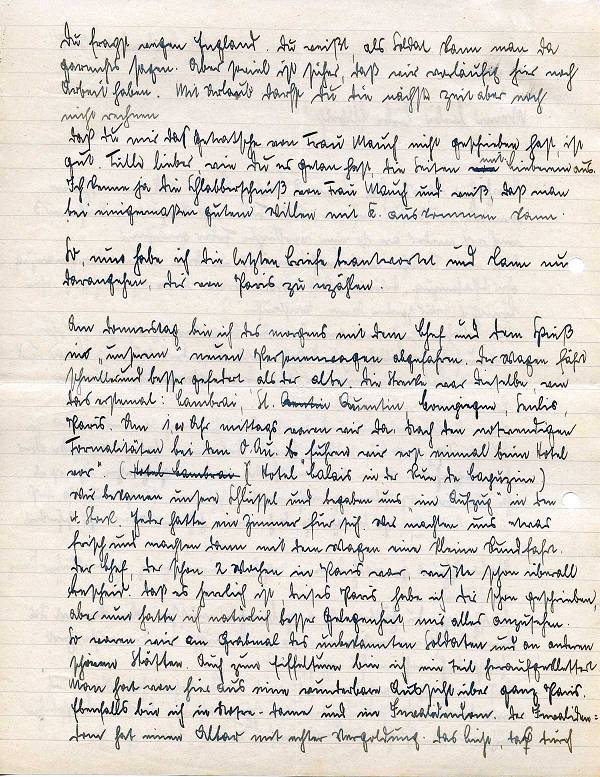 Du fragst wegen England. Du weißt, als Soldat kann man da
garnichts sagen. Aber soviel ist sicher, daß wir vorläufig hier noch
Arbeit haben. Mit Urlaub darfst Du die nächste Zeit aber noch
nicht rechnen
Daß Du mir das Getratsche von Frau Mauch nicht geschrieben hast, ist
gut. Fülle lieber wie Du es getan hast, die Seiten mit lieberem aus.
Ich kenne ja die von Frau Mauch und weiß, daß man
bei einigermaßen gutem Willen mit E. auskommen kann.
So, nun habe ich die letzten Briefe beantwortet und kann nun
darangehen, Dir von Paris zu erzählen.
Am Donnerstag bin ich des morgens mit dem Chef und dem Spieß
in „unserem" neuen Personenwagen abgefahren. Der Wagen fährt
schneller und besser gefedert als der alte. Die Strecke war dieselbe, wie
das erstemal: Cambrai, St. Quentin, Compiegne, Senlis,
Paris. Um 1,00 Uhr mittags waren wir da. Nach den notwendigen
Formalitäten bei dem führen wir erst einmal beim Hotel
vor" (Hotel Cambrai (Hotel "Calais in der Rue de)
Wir bekamen unsere Schlüssel und begaben uns "im Aufzug" in den
4. Stock. Jeder hatte ein Zimmer für sich. Wir machten uns etwas
frisch und machten dann mit dem Wagen eine kleine Rundfahrt.
Der Chef, der schon 2 Wochen in Paris war, wußte schon überall
Bescheid. Daß es herrlich ist dieses Paris, habe ich Dir schon geschrieben,
aber nun hatte ich natürlich besser Gelegenheit mir alles anzusehen.
So waren wir am Grabmal des unbekannten Soldaten und an anderen
schönen Stätten. Auch zum Eiffelturm bin ich ein Teil heraufgeklettert
Man hat von hier aus eine wunderbare Aussicht über ganz Paris.
Ebenfalls bin ich in Notre-Dame und im Invalidendom. Der Invaliden=
dom hat einen Altar mit echter Vergoldung. Das Licht, daß durch